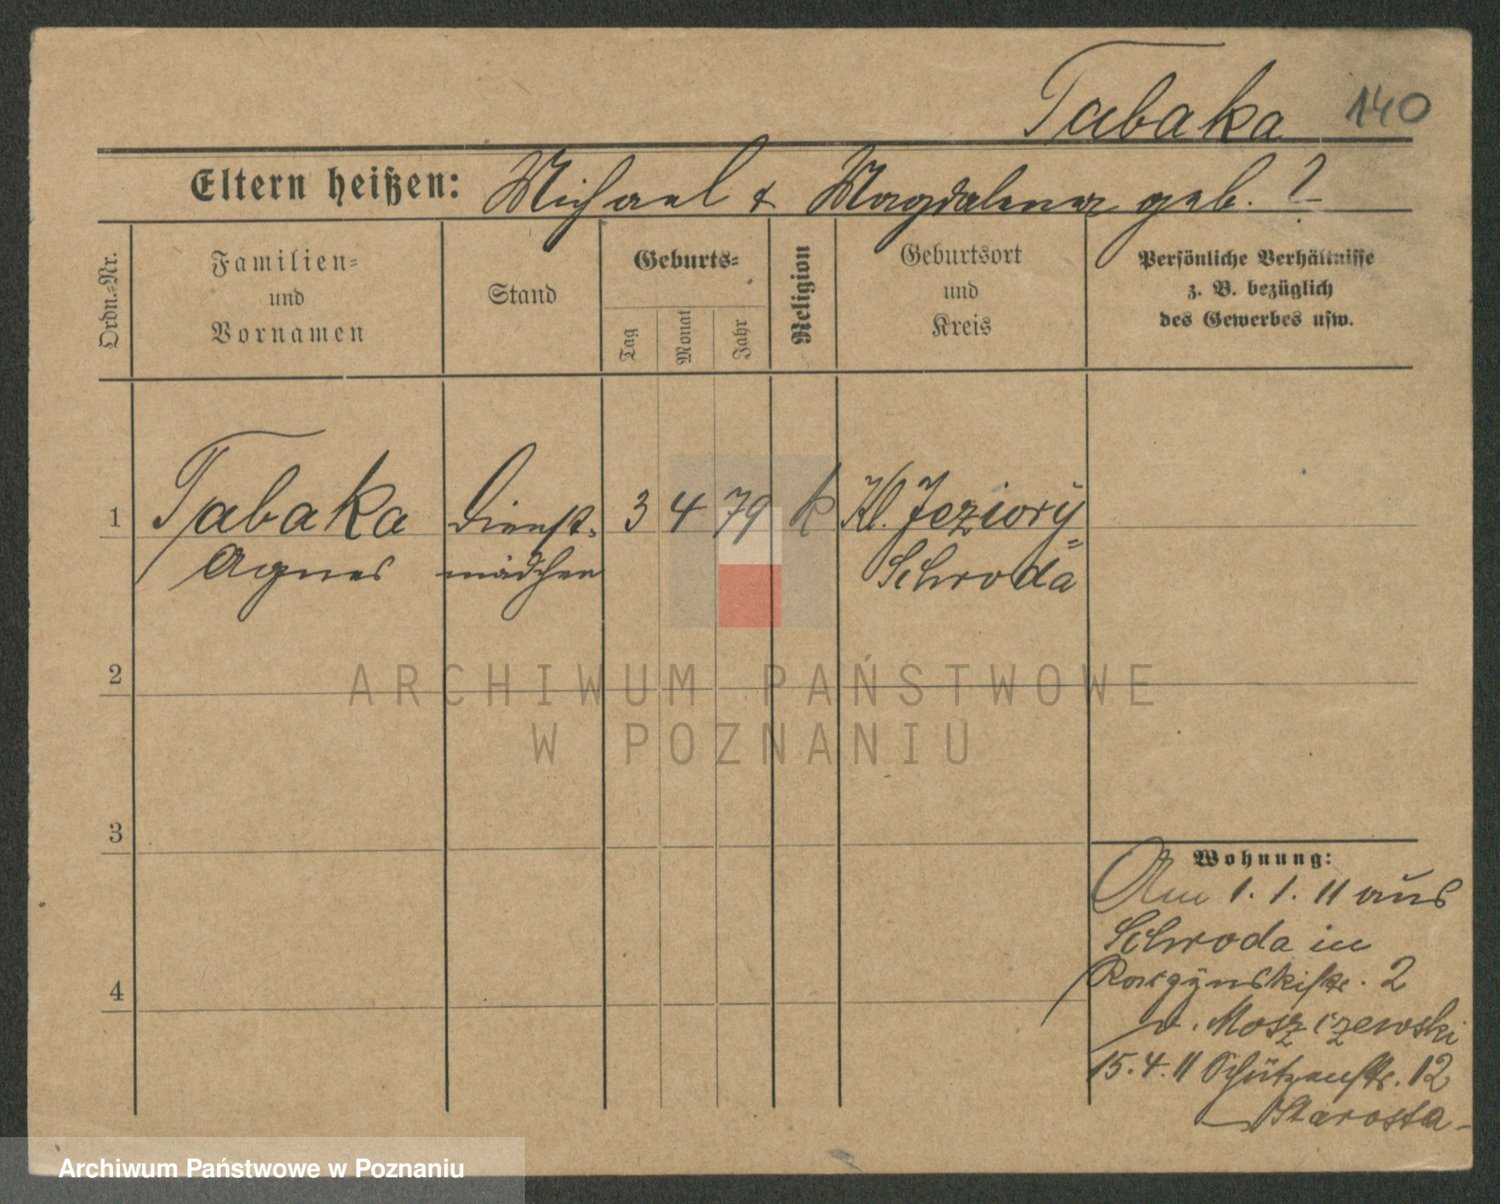 Tabaka 140
Eltern heißen: Michael & Magdalena geb. ?
Ordn.-Nr.
Familien-
und
Vornamen
Stand
Geburts-
Tag
Monat
Jahr
Religion
Geburtsort
und
Kreis
Persönliche Verhältnisse
z. B. bezüglich
des Gewerbes usw.
1 Tabaka Dienst- 3 4 79 k Kl. Jeziory
Agnes mädchen Schroda
2
3
4
Wohnung:
Am 1. 1. 11 aus
Schroda in
2
v. Moszczewski
15. 4. 11 Schützenstr. 12
Starosta
ARCHIWUM PAŃSTWOWE
W POZNANIU
Archiwum Państwowe w Poznaniu